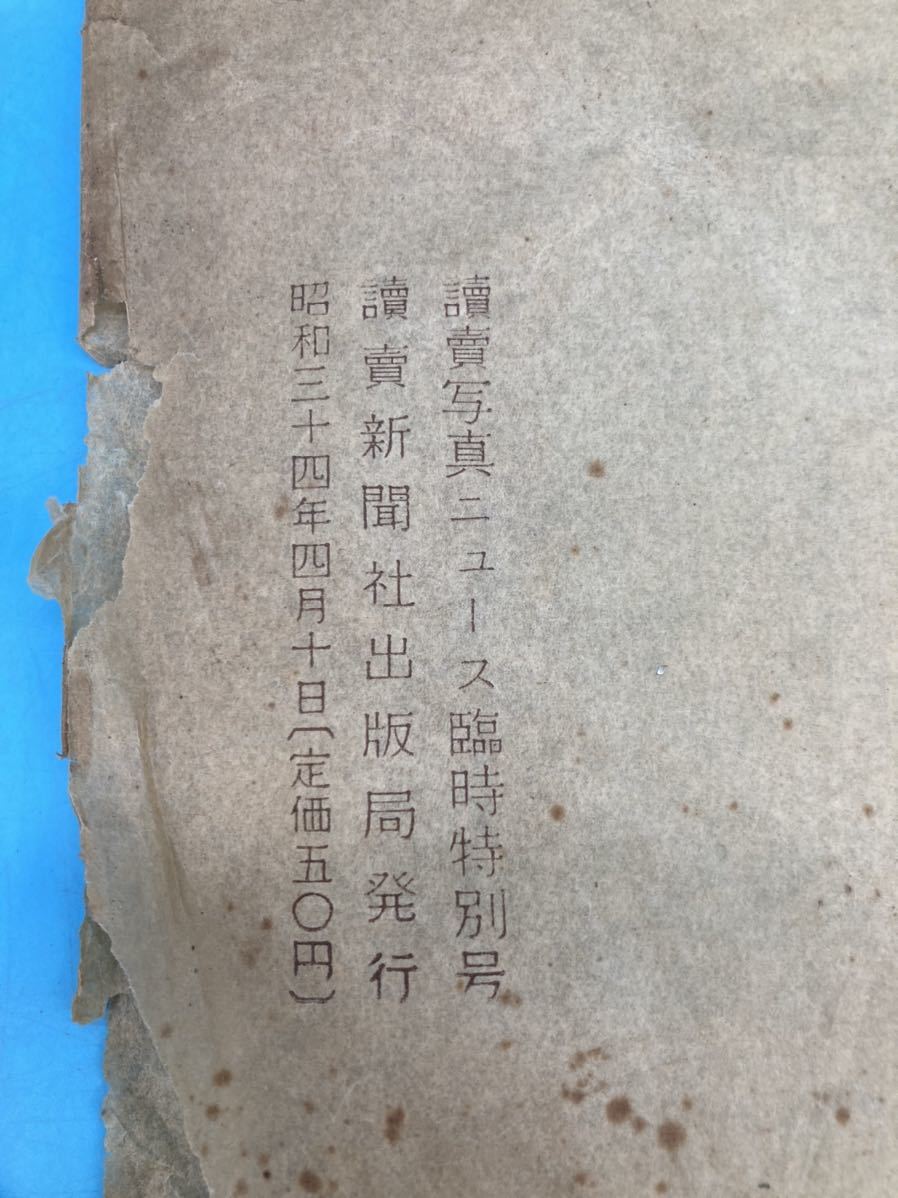 讀賣写真ニュース臨時特別号
讀賣新聞社出版局発行
昭和三十四年四月十日〔定価五〇円〕